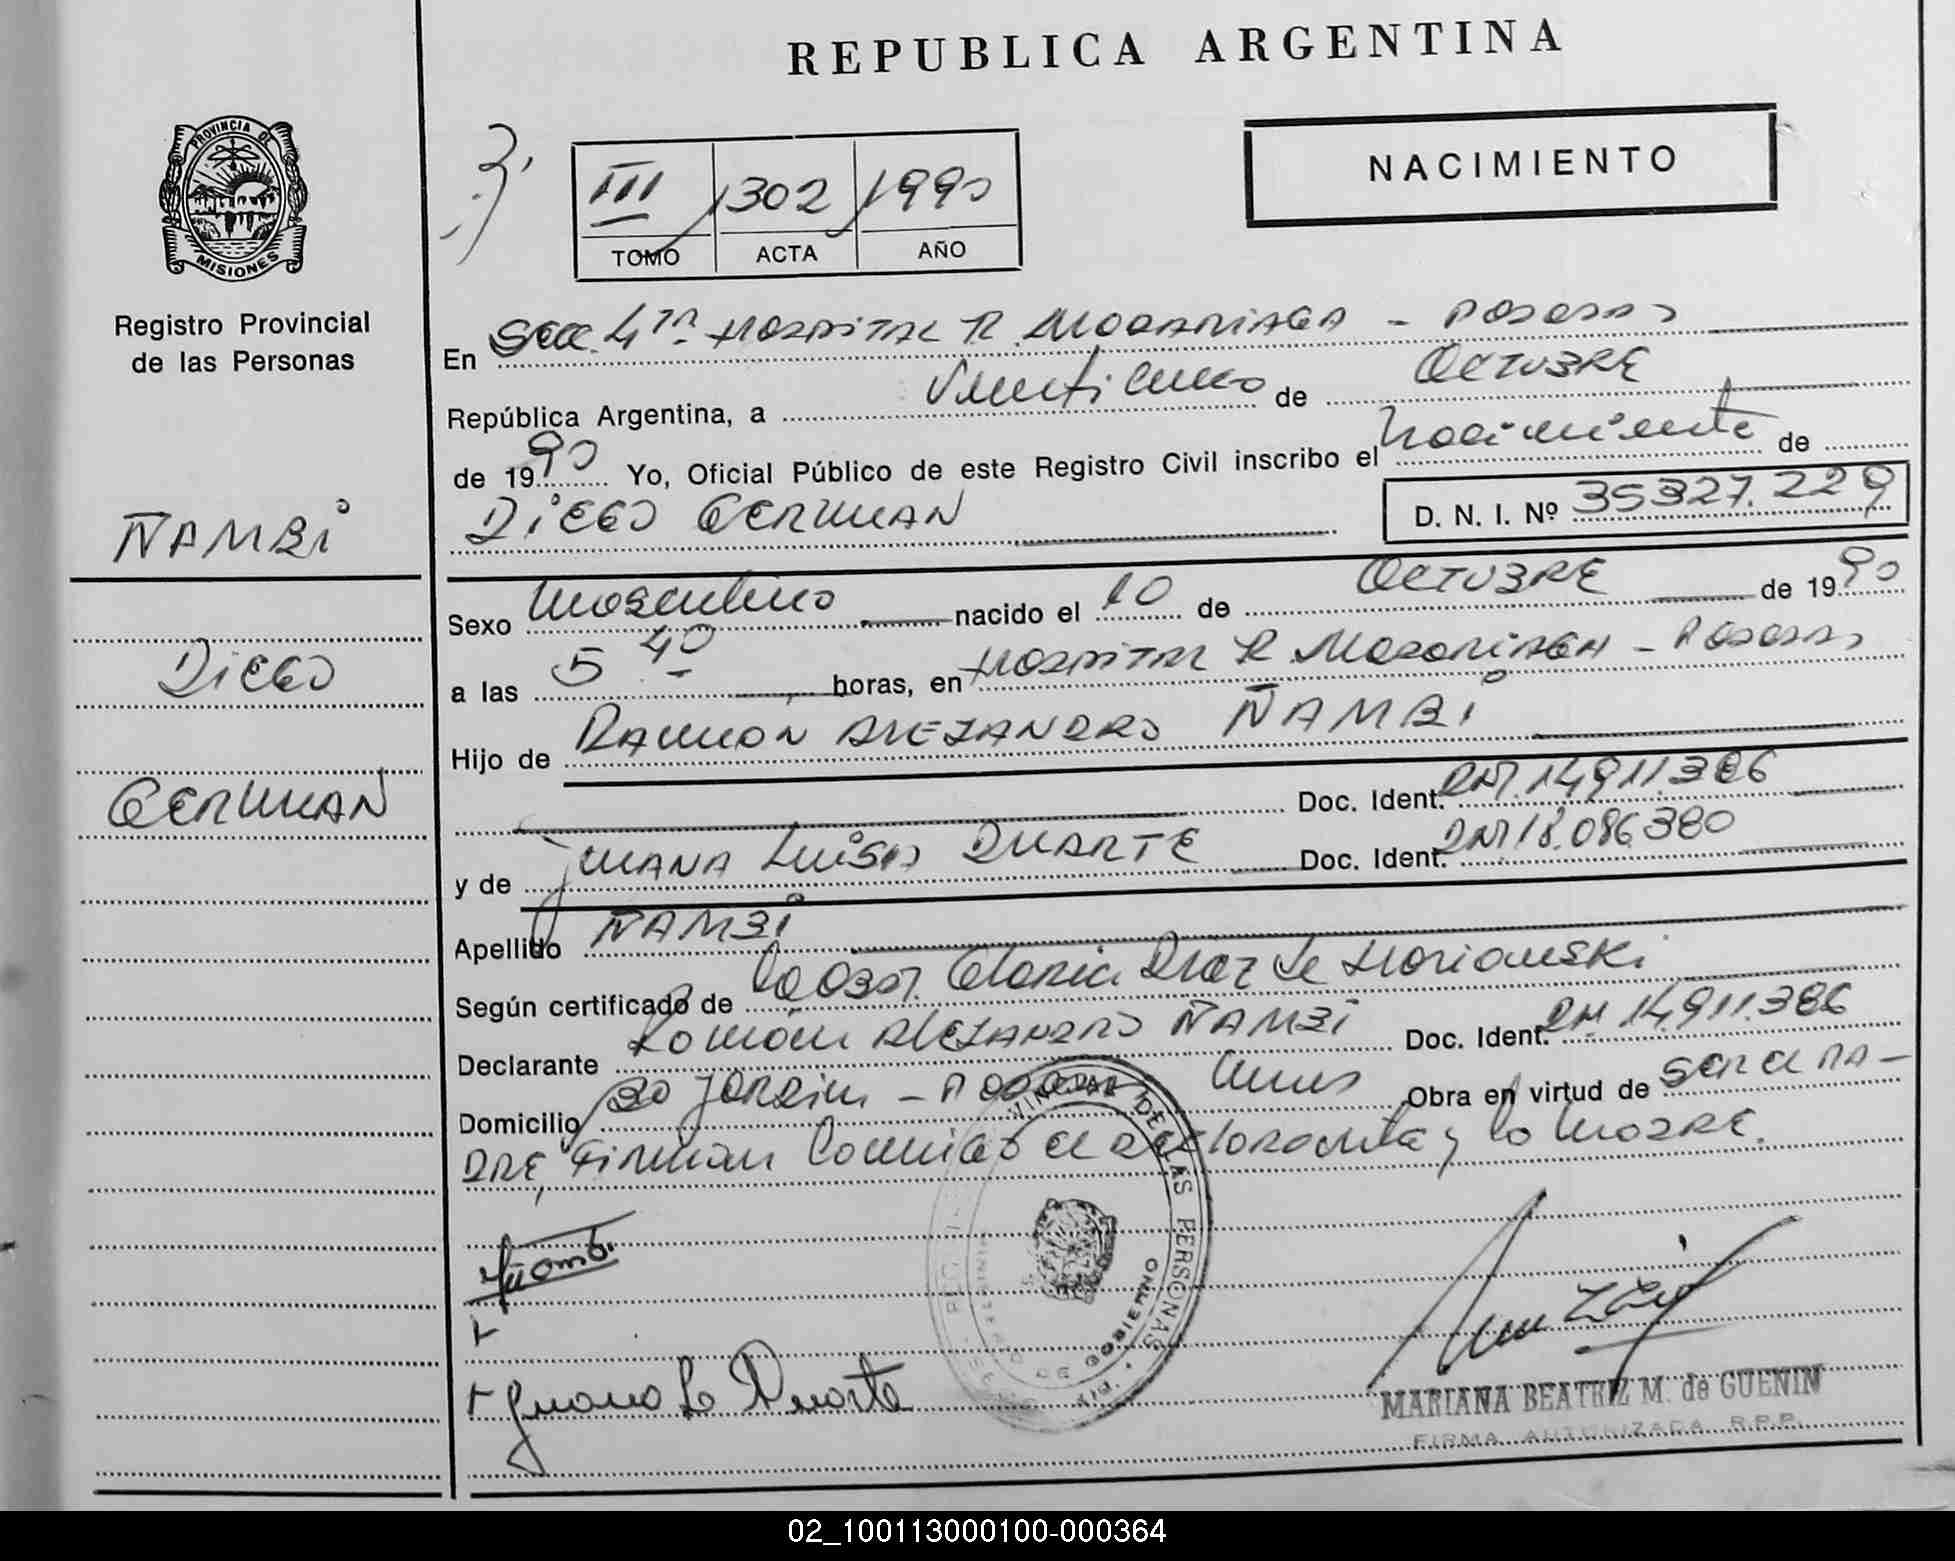 REPUBLICA ARGENTINA
PROVINCIA DE
MISIONES
Registro Provincial
de las Personas
III 1302 1990
TOMO ACTA AÑO
NACIMIENTO
En Secc. 4ta Hospital R. Madariaga - Posadas
República Argentina, a Veinticinco de OCTUBRE
de 1990 Yo, Oficial Público de este Registro Civil inscribo el Nacimiento de
DIEGO GERMAN D. N. I. Nº 35327.229
ÑAMBI
DIEGO
GERMAN
Sexo Masculino nacido el 10 de OCTUBRE de 1990
a las 5 40 horas, en Hospital R. Madariaga - Posadas
Hijo de RAMON ALEJANDRO ÑAMBI
Doc. Ident. DNI. 14.911.386
y de JUANA LUISA DUARTE Doc. Ident. DNI 18.086.380
Apellido ÑAMBI
Según certificado de la Obst. Gloria Diaz de
Declarante Ramón ALEJANDRO ÑAMBI Doc. Ident. DNI. 14.911.386
Domicilio Bo Jardin - Posadas Mnes Obra en virtud de SER EL PA-
DRE, Firman Conmigo el declarante y la MADRE.
Ñambi
Juana L. Duarte
DE LAS PERSONAS
DE GOBIERNO
MARIANA BEATRIZ M. de GUENIN
FIRMA AUTORIZADA R.P.P.
02_100113000100-000364